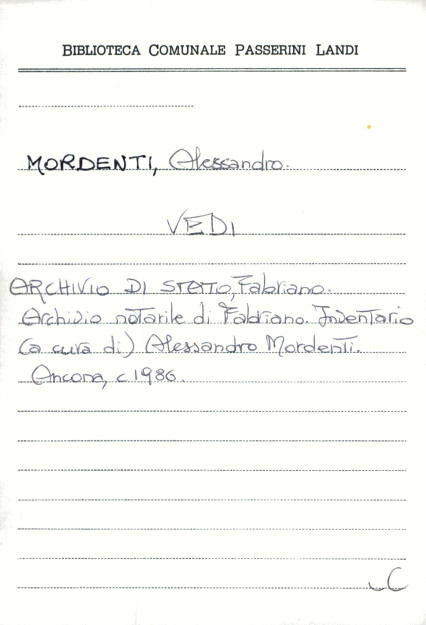 BIBLIOTECA COMUNALE PASSERINI LANDI
MORDENTI, Alessandro.
VEDI
ARCHIVIO DI STATO, Fabriano.
Archivio notarile di Fabriano. Inventario
(a cura di) Alessandro Mordenti.
Ancona, c1986.